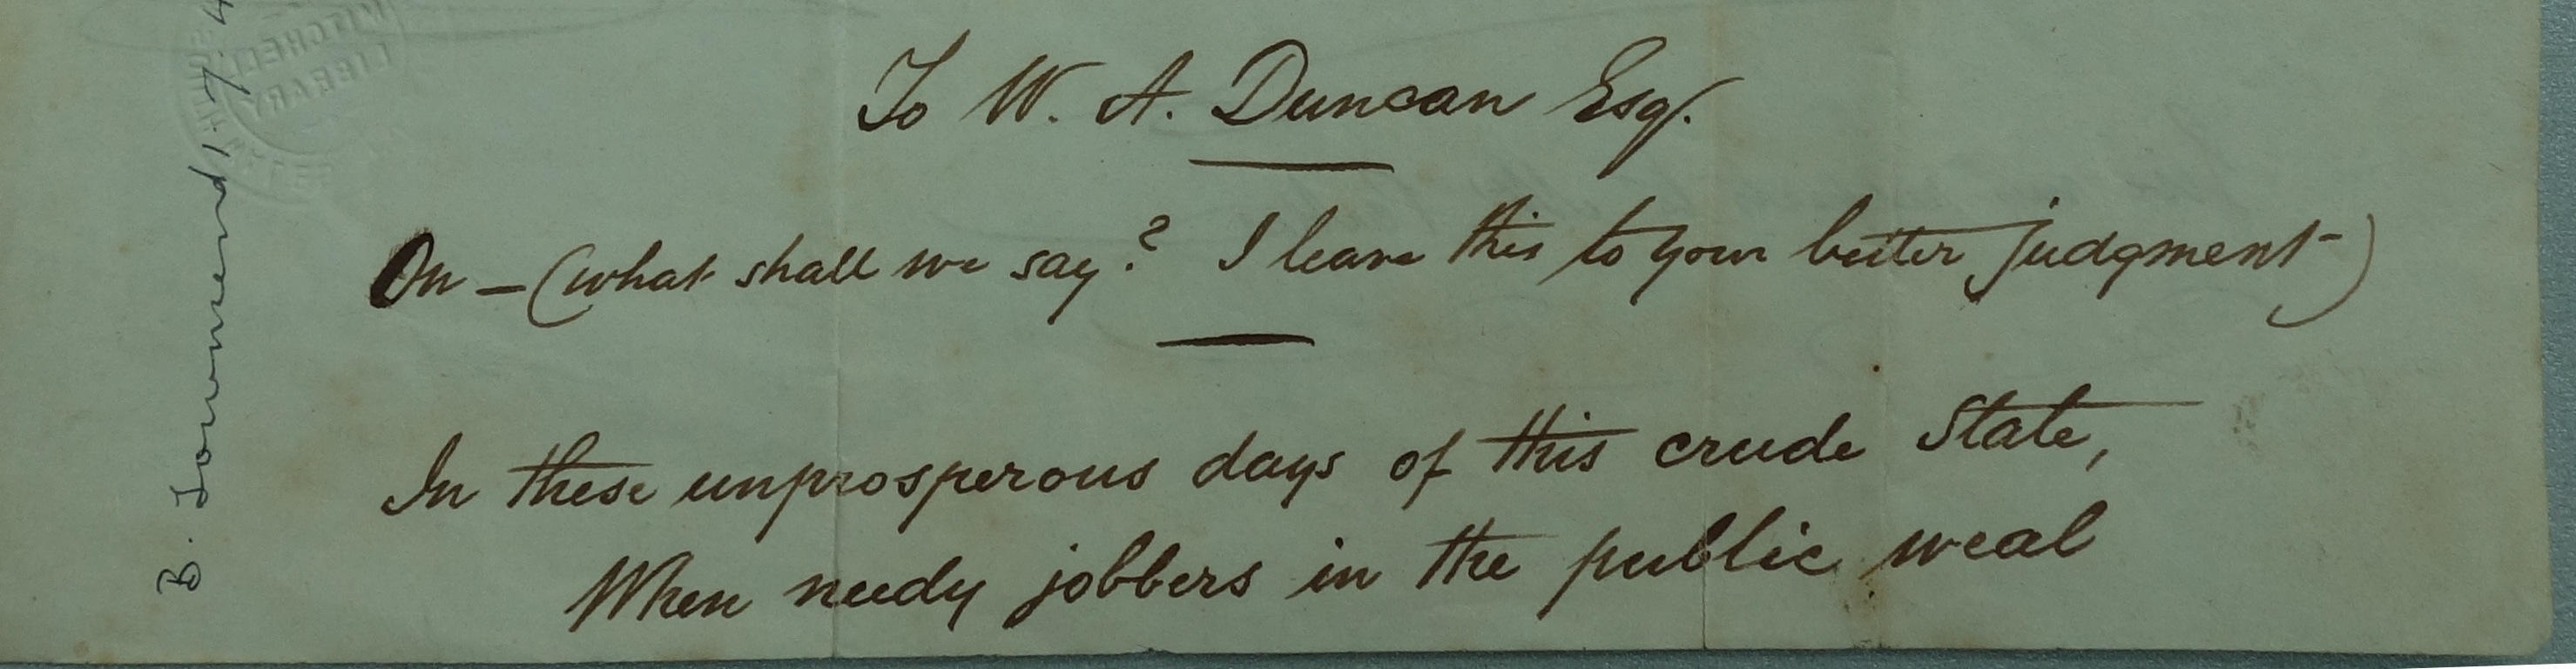 To W. A. Duncan Esq.
On – (what shall we say? I leave this to your better judgment)
In these unprosperous days of this crude State,
When needy jobbers in the public weal
B. Townsend 17. 4
MITCHELL
LIBRARY